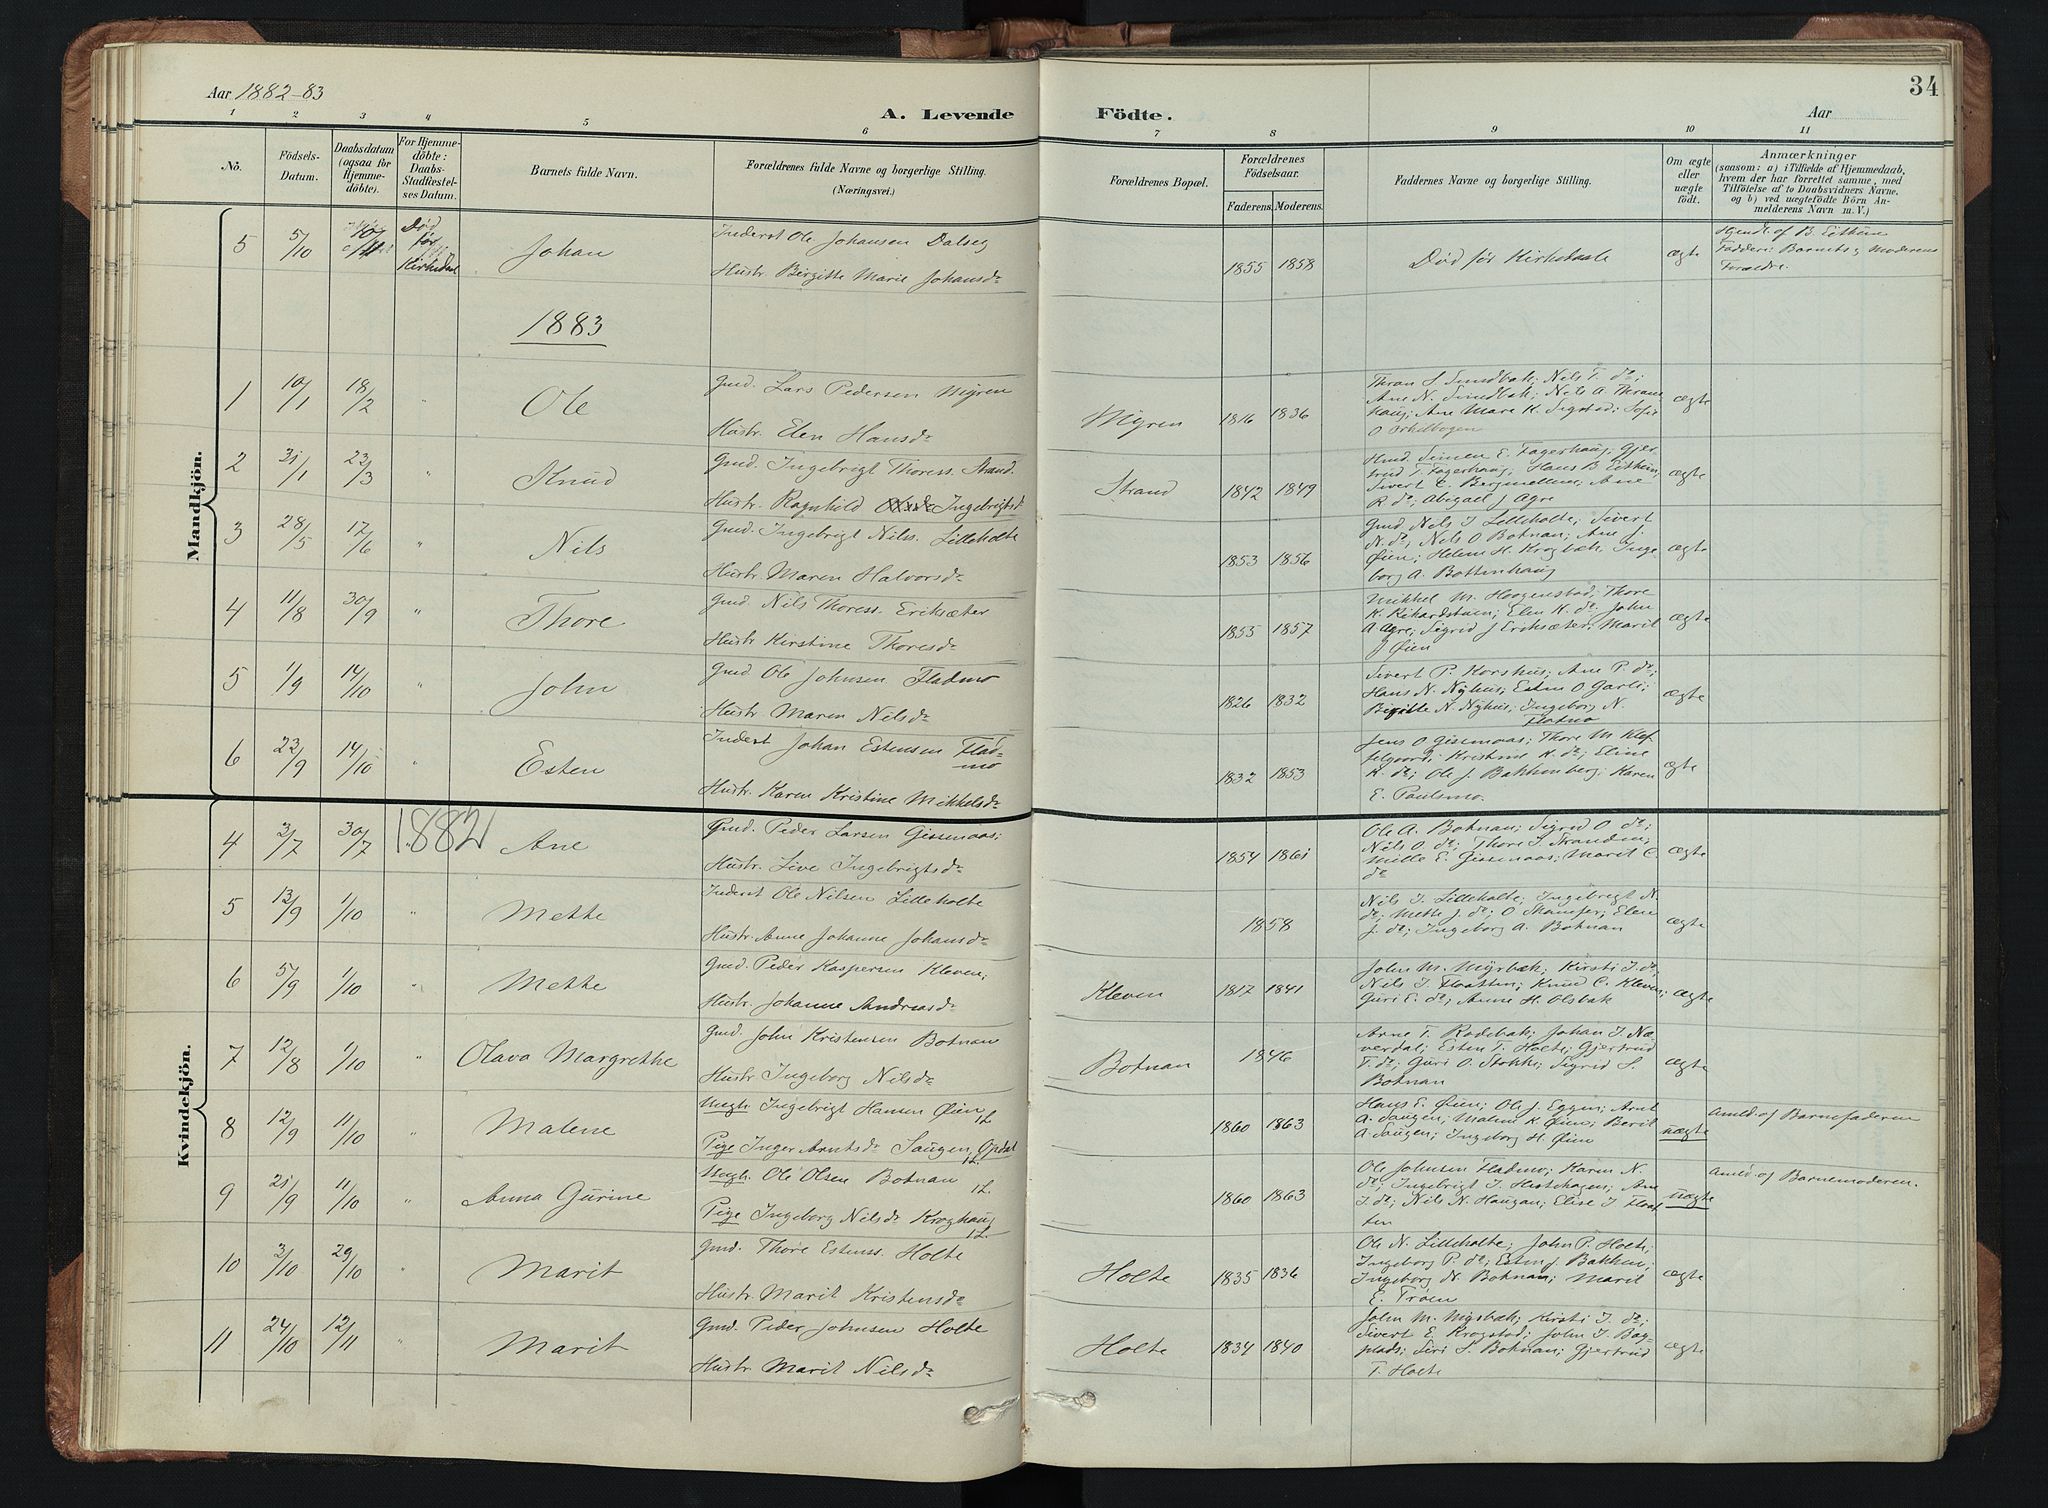 34
Aar 1882-83
A. Levende Födte.
Aar
1 2 3 4 5 6 7 8 9 10 11
No.
Födsels-Datum.
Daabsdatum (ogsaa for Hjemmedöbte).
For Hjemmedöbte: Daabs-Stadfæstelses Datum.
Barnets fulde Navn.
Forældrenes fulde Navne og borgerlige Stilling. (Næringsvei.)
Forældrenes Bopæl.
Forældrenes Födselsaar.
Faderens. Moderens.
Faddernes Navne og borgerlige Stilling.
Om ægte eller uægte födt.
Anmærkninger
(saasom: a) i Tilfælde af Hjemmedaab,
hvem der har forrettet samme, med
Tilföielse af to Daabsvidners Navne,
og b) ved uægtefödte Börn Anmelderens Navn m. V.)
Mandkjön.
5 5/10 Død før Kirkedaab Johan
Inderst Ole Johansen Dalseg
Hustr. Birgitte Marie Johansdr
1855 1858 Død før Kirkedaab ægte
Hjemdt. af B. Eithun
Fadderi Barnets og Moderens
Forældre.
1883
1 10/1 18/2 " Ole
Gmd. Lars Pedersen Myren
Hustr. Elen Hansdr
Myren 1816 1836
Thran S. Sundbak; Nils T. do;
Ane N. Sundbak; Nils A. Thranehaug; Ane Mare K. Sigstad; Sofie
O Orkelbogen
ægte
2 31/1 23/3 " Knud
Gmd. Ingebrigt Thoress. Strand.
Hustr. Ragnhild Ingebrigtsdr
Strand 1842 1849
Hmd. Simen E. Fagerhaug; Gjertrud T. Fagerhaug; Hans B. Eithun,
Sivert E. Bergmellem; Ane
R. do; Abigael J Agre
ægte
3 28/5 17/6 " Nils
Gmd. Ingebrigt Nilss. Lilleholte
Hustr. Maren Halvorsdr
1853 1856
Gmd Nels I Lilleholte; Sivert
N. do; Nels O Botnan; Ane J.
Øien; Helene H. Krogbæk; Ingeborg A. Bottenhaug
ægte
4 11/8 30/9 " Thore
Gmd. Nils Thoress. Eriksæter
Hustr. Kirstine Thoresdr
1855 1857
Mikkel M. Haagenstad; Thore
K. Rikardstuen; Elen K. do; John
A. Agre; Sigrid J Eriksæter; Marit
J Øien
ægte
5 1/9 14/10 " John
Gmd. Ole Johnsen Fladmo
Hustr. Maren Nilsdr
1826 1832
Sivert P. Korshus; Ane P. do;
Hans N. Nyhus; Esten O Garli;
Birgitte N. Nyhus; Ingeborg N.
Flatmo
ægte
6 23/9 14/10 " Esten
Inderst Johan Estensen Fladmo
Hustr. Karen Kristine Mikkelsdr
1832 1853
Jens O Gisemoas; Thore M. Kleffelgaard; Kristine K. do; Eline
K. do; Ole J. Bakkenberg; Karen
E. Paulsmo.
ægte
Kvindekjön.
1882
4 3/7 30/7 Ane
Gmd. Peder Larsen Gissemoas;
Hustr. Live Ingebrigtsdr
1854 1861
Ole A. Botnan; Sigrid O do;
Nils O. do; Thore I. Stranden;
Mille E. Gissemoas; Marit C.
do
ægte
5 13/9 1/10 " Mette
Inderst Ole Nilsen Lilleholte
Hustr. Anne Johanne Johansdr
1858
Nils I. Lilleholte; Ingebrigt N.
do; Mette J. do; O Skamfer; Elen
J. do; Ingeborg A. Botnan
ægte
6 5/9 1/10 " Mette
Gmd. Peder Kaspersen Kleven;
Hustr. Johanne Andreasdr
Kleven 1817 1841
John M. Myrbæk; Kirsti I. do;
Nils I. Floatten; Knud C. Kleven;
Guri E. do; Anne H. Olsbak
ægte
7 12/8 1/10 " Olava Margrethe
Gmd. John Kristensen Botnan
Hustr. Ingeborg Nilsdr
Botnan 1846
Arne T. Rodebak; Johan I. Næverdal; Esten T. Holte; Gjertrud
T. do; Guri O. Stokke; Sigrid S.
Botnan
ægte
8 12/9 11/10 " Malene
Ungk. Ingebrigt Hansen Øien 1L.
Pige Inger Arntsdr Saugen, Opdal 1L.
1860 1863
Hans E. Øien; Ole J. Eggen; Arnt
A. Saugen; Malene K. Øien; Berit
A. Saugen; Ingeborg H. Øien
uægte
Anmld. af Barnefaderen
9 21/9 11/10 " Anna Gurine
Ungk. Ole Olsen Botnan 1L.
Pige Ingeborg Nilsdr Kroghaug 1L.
1860 1863
Ole Johnsen Fladmo; Karen N.
do; Ingebrigt I. Hestehagen; Ane
I. do; Nils N. Haugan; Elise I Floatten
uægte
Anmld. af Barnemoderen.
10 3/10 29/10 " Marit
Gmd. Thore Estenss. Holte
Hustr. Marit Kristensdr
Holte 1835 1836
Ole N. Lilleholte; John P. Holte;
Ingeborg P. do; Esten J. Bakken;
Ingeborg N. Botnan; Marit
E. Trøen
ægte
11 24/10 12/11 " Marit
Gmd. Peder Johnsen Holte
Hustr. Marit Nilsdr
Holte 1834 1840
John M. Myrbæk; Kirsti I. do;
Sivert E. Krogstad; John I. Bagplads; Siri S. Botnan; Gjertrud
T. Holte
ægte